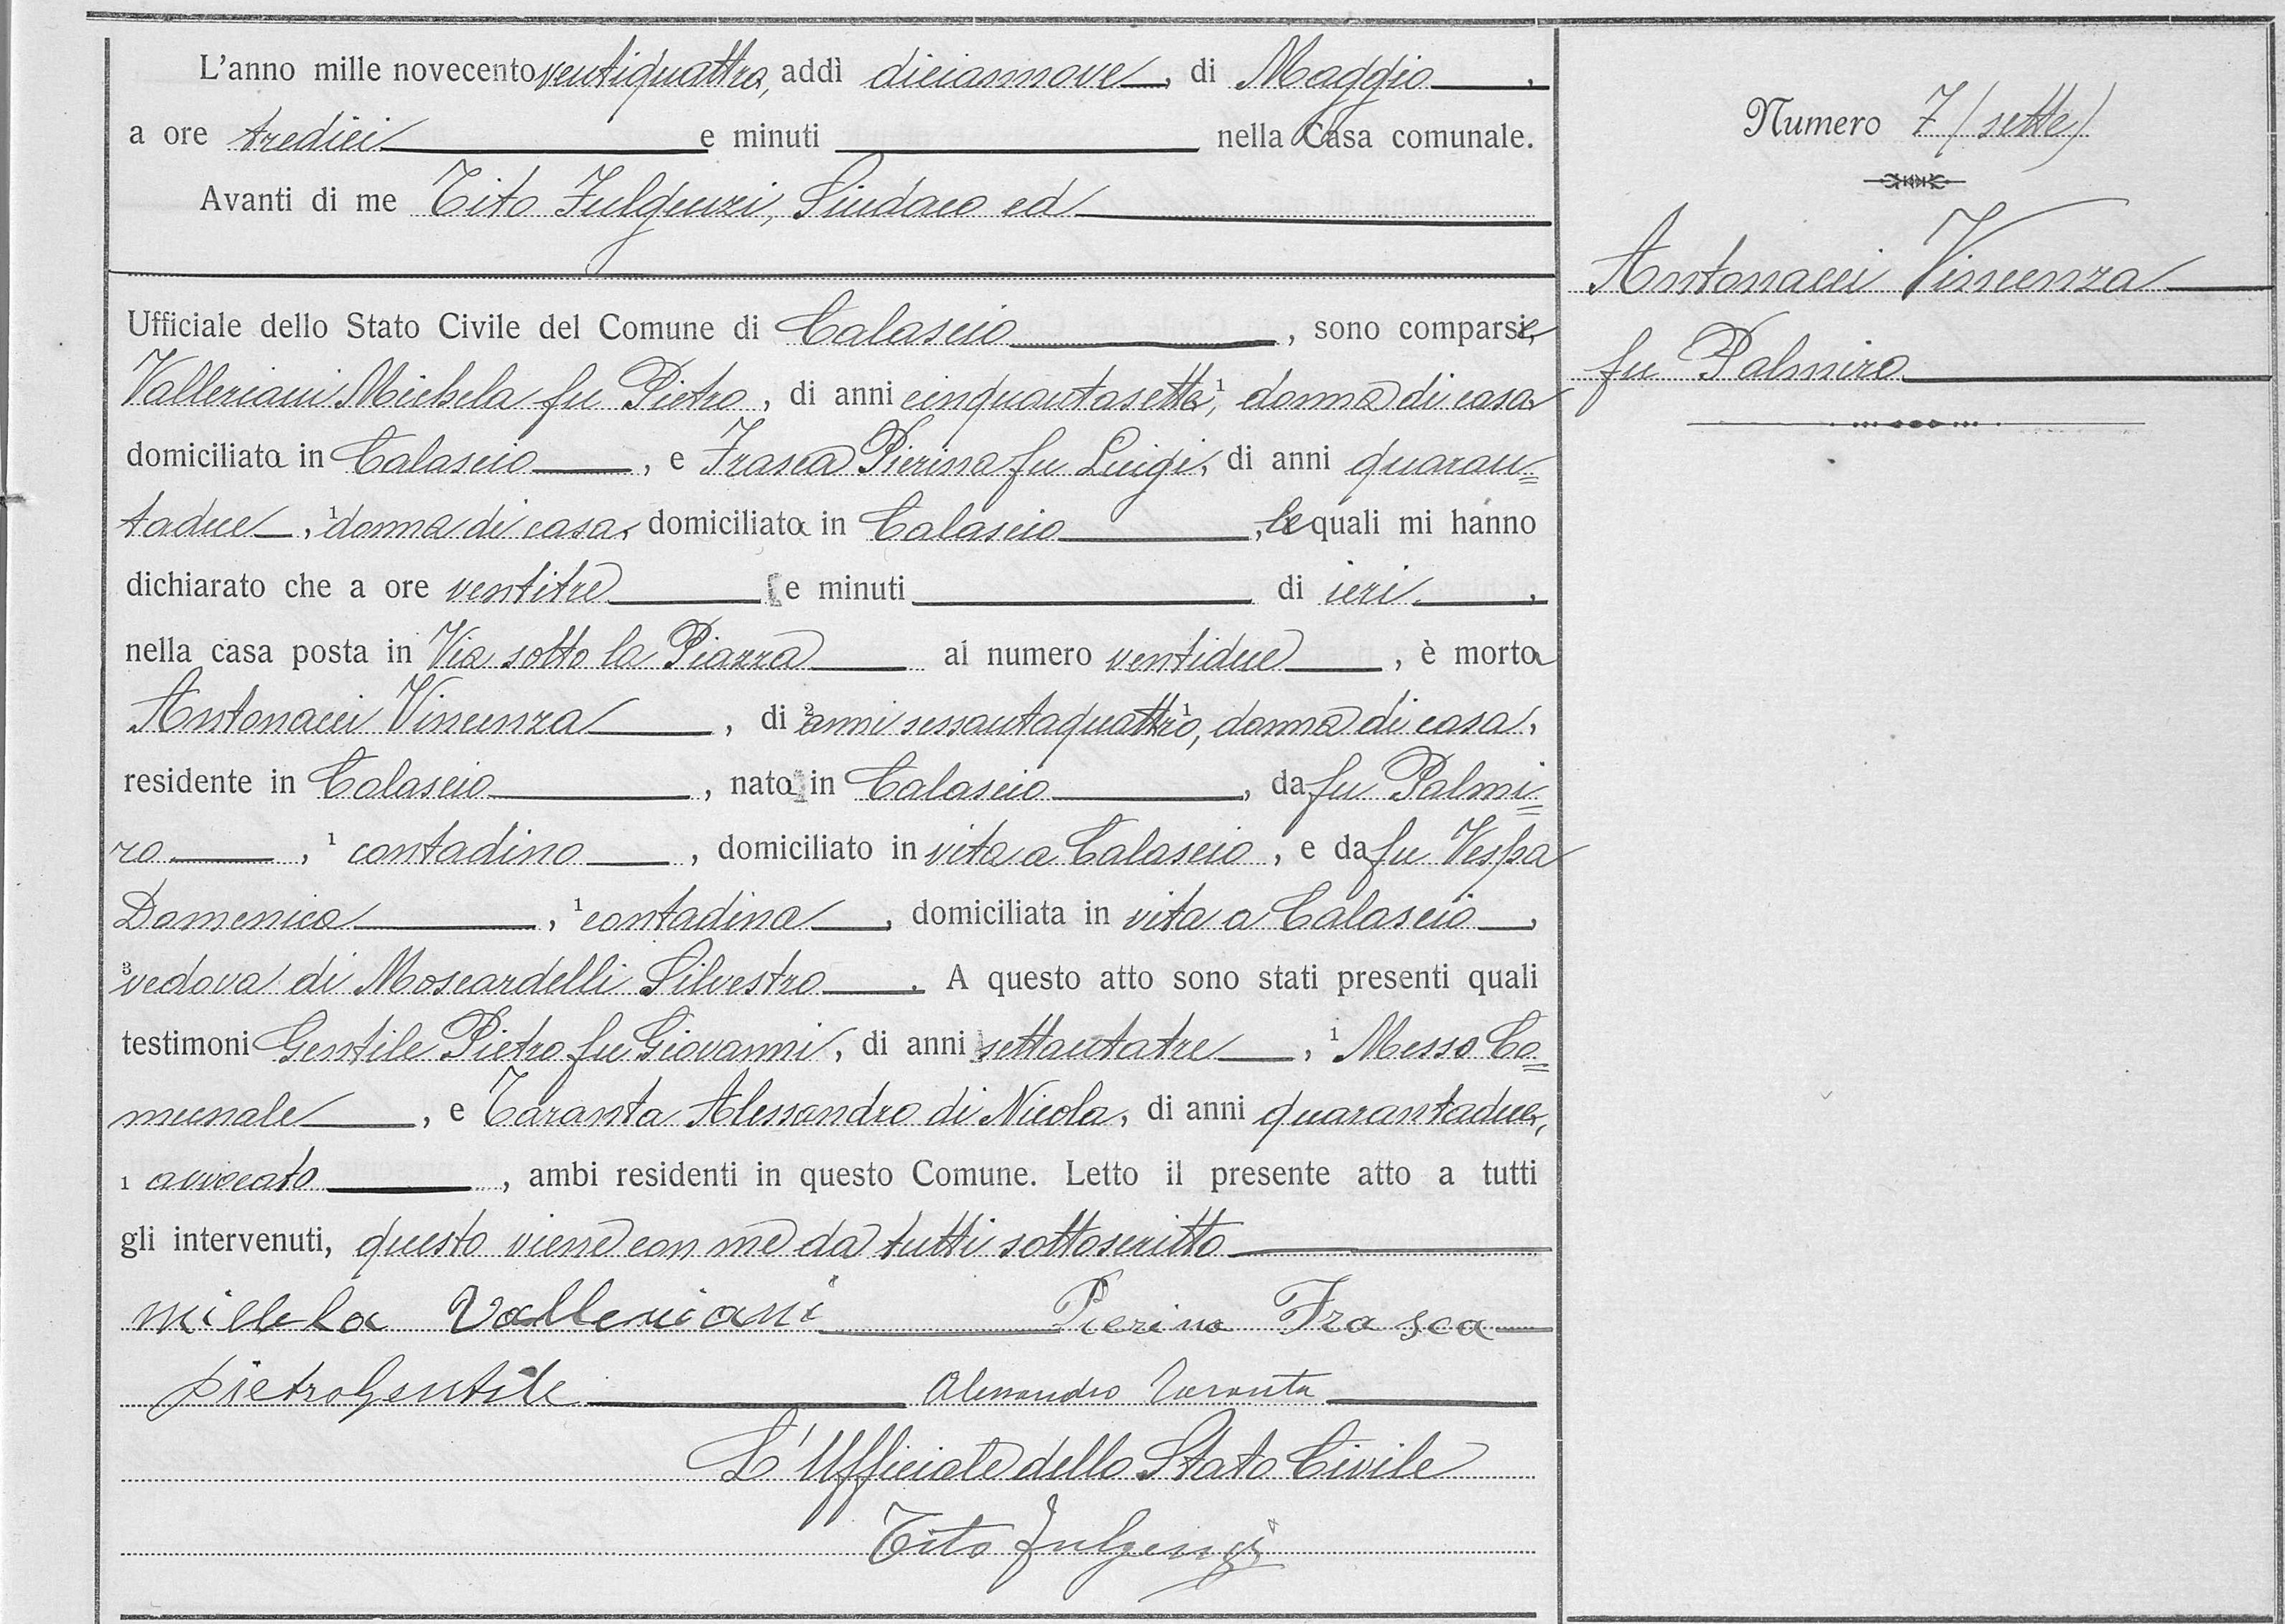 L'anno mille novecento ventiquattro, addì diciannove, di Maggio,
a ore tredici e minuti nella Casa comunale.
Avanti di me Tito Fulgenzi, Sindaco ed
Ufficiale dello Stato Civile del Comune di Calascio, sono comparse,
Valleriani Michela fu Pietro, di anni cinquantasette, ¹ donna di casa
domiciliata in Calascio, e Frasca Pierina fu Luigi, di anni quaran=
tadue, ¹ donna di casa, domiciliata in Calascio, le quali mi hanno
dichiarato che a ore ventitre e minuti di ieri,
nella casa posta in Via sotto la Piazza al numero ventidue, è morta
Antonacci Vincenza, di ² anni sessantaquattro, ¹ donna di casa,
residente in Calascio, nata in Calascio, da fu Palmi=
ro, ¹ contadino, domiciliato in vita a Calascio, e da fu Vespa
Domenica, ¹ contadina, domiciliata in vita a Calascio,
³ vedova di Moscardelli Silvestro. A questo atto sono stati presenti quali
testimoni Gentile Pietro fu Giovanni, di anni settantatre, ¹ Messo Co=
munale, e Taranta Alessandro di Nicola, di anni quarantadue,
¹ avvocato, ambi residenti in questo Comune. Letto il presente atto a tutti
gli intervenuti, questo viene con me da tutti sottoscritto
Valleriani Pierina Frasca
Pietro Gentile Alessandro Taranta
L'Ufficiale dello Stato Civile
Tito Fulgenzi
Numero 7 (sette)
Antonacci Vincenza
fu Palmiro